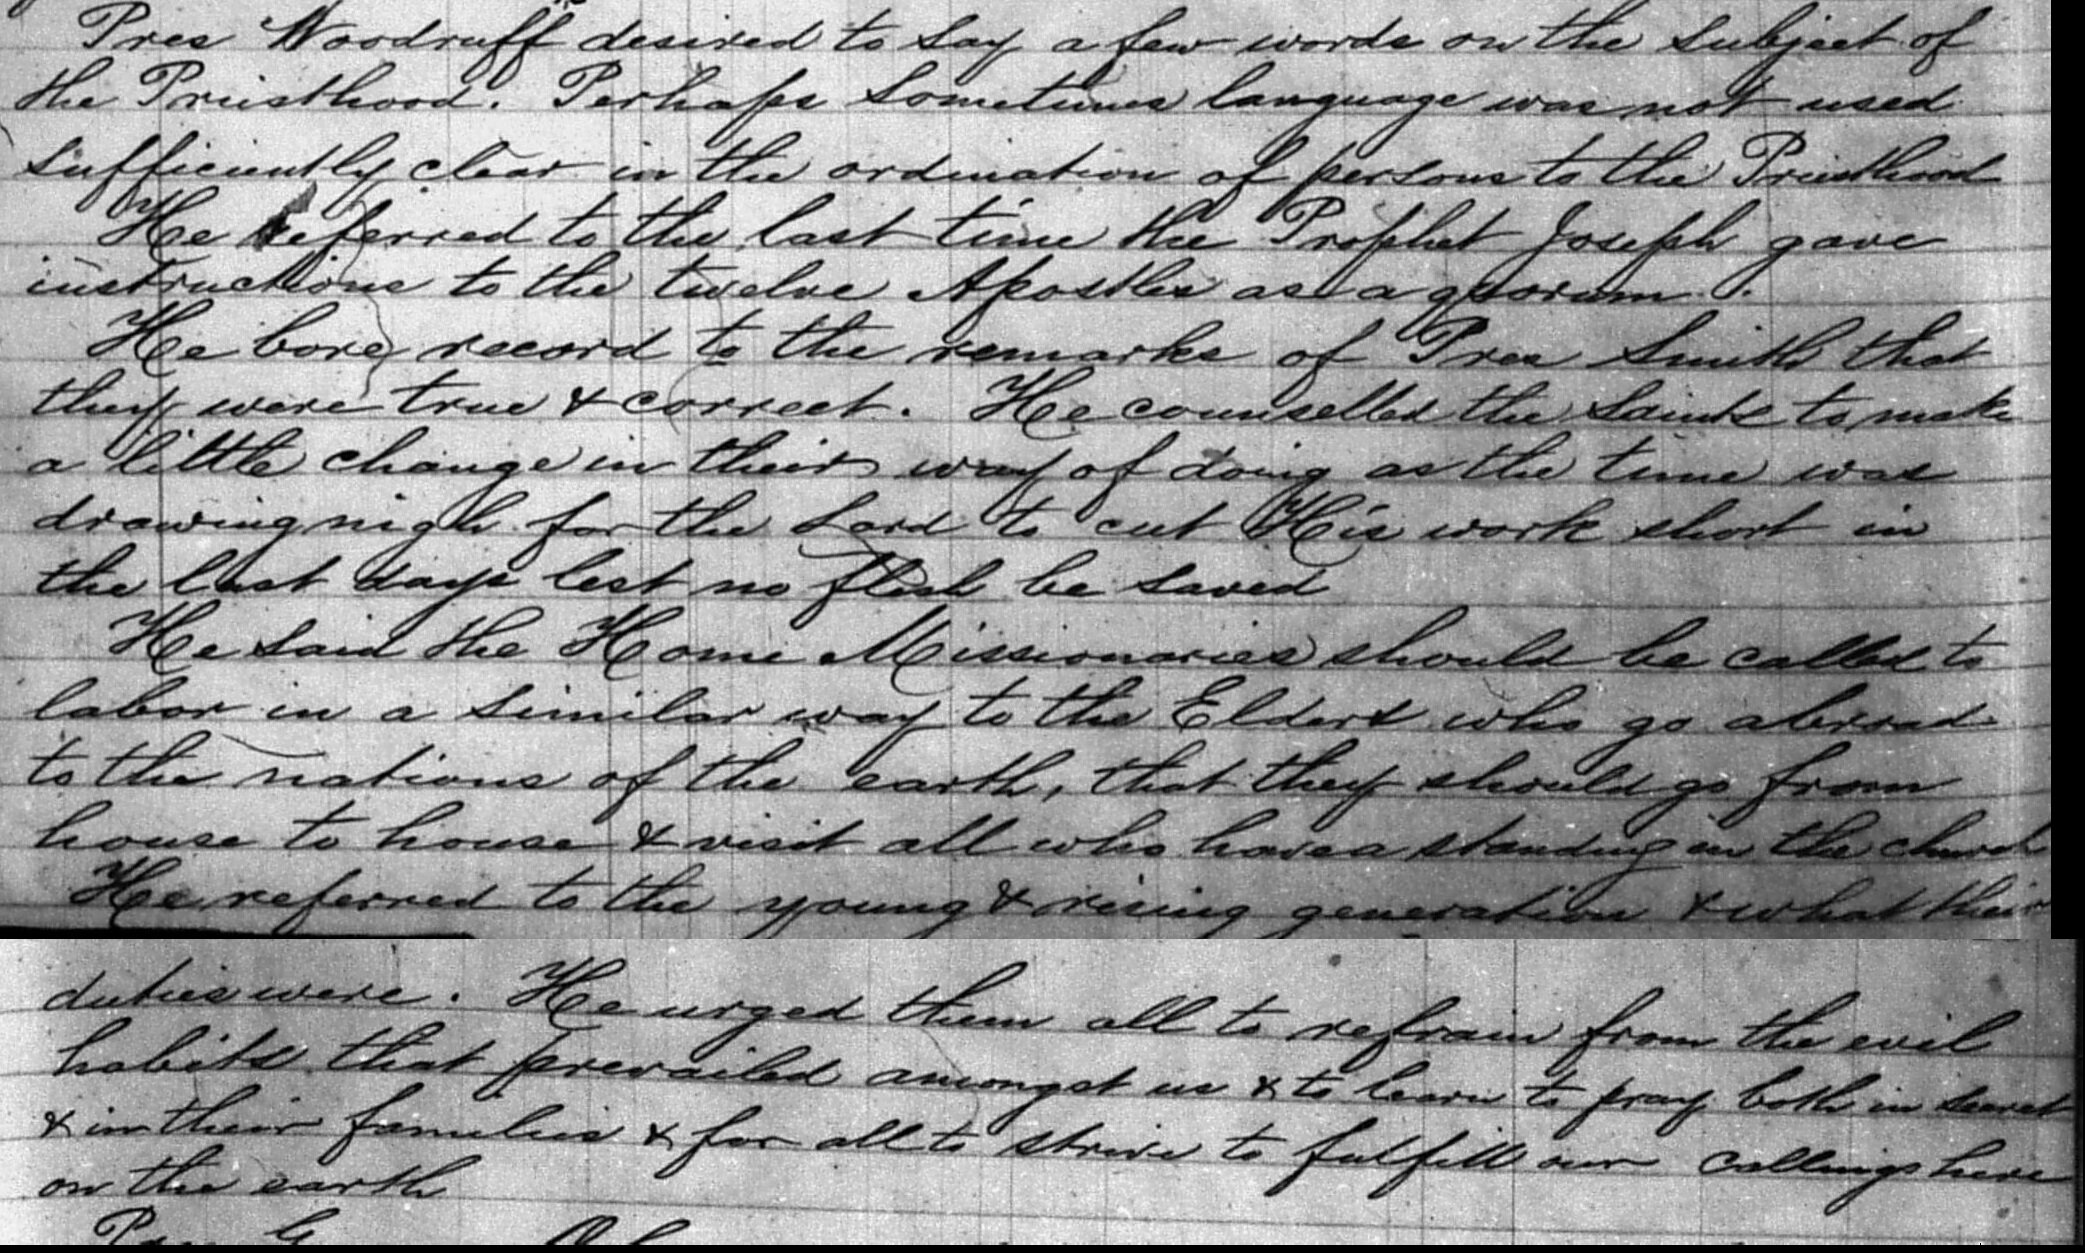 Pres Woodruff desired to say a few words on the subject of
the Priesthood. Perhaps sometimes language was not used
sufficiently clear in the ordination of persons to the Priesthood
He referred to the last time the Prophet Joseph gave
instructions to the twelve Apostles as a quorum.
He bore record to the remarks of Pres Smith that
they were true & correct. He counselled the Saints to make
a little change in their way of doing as the time was
drawing nigh for the Lord to cut His work short in
the last days lest no flesh be saved
He said the Home Missionaries should be called to
labor in a similar way to the Elders who go abroad
to the nations of the earth, that they should go from
house to house & visit all who have a standing in the church
He referred to the young & rising generation & what their
duties were. He urged them all to refrain from the evil
habits that prevailed amongst us & to learn to pray both in secret
& in their families & for all to strive to fulfill our callings here
on the earth